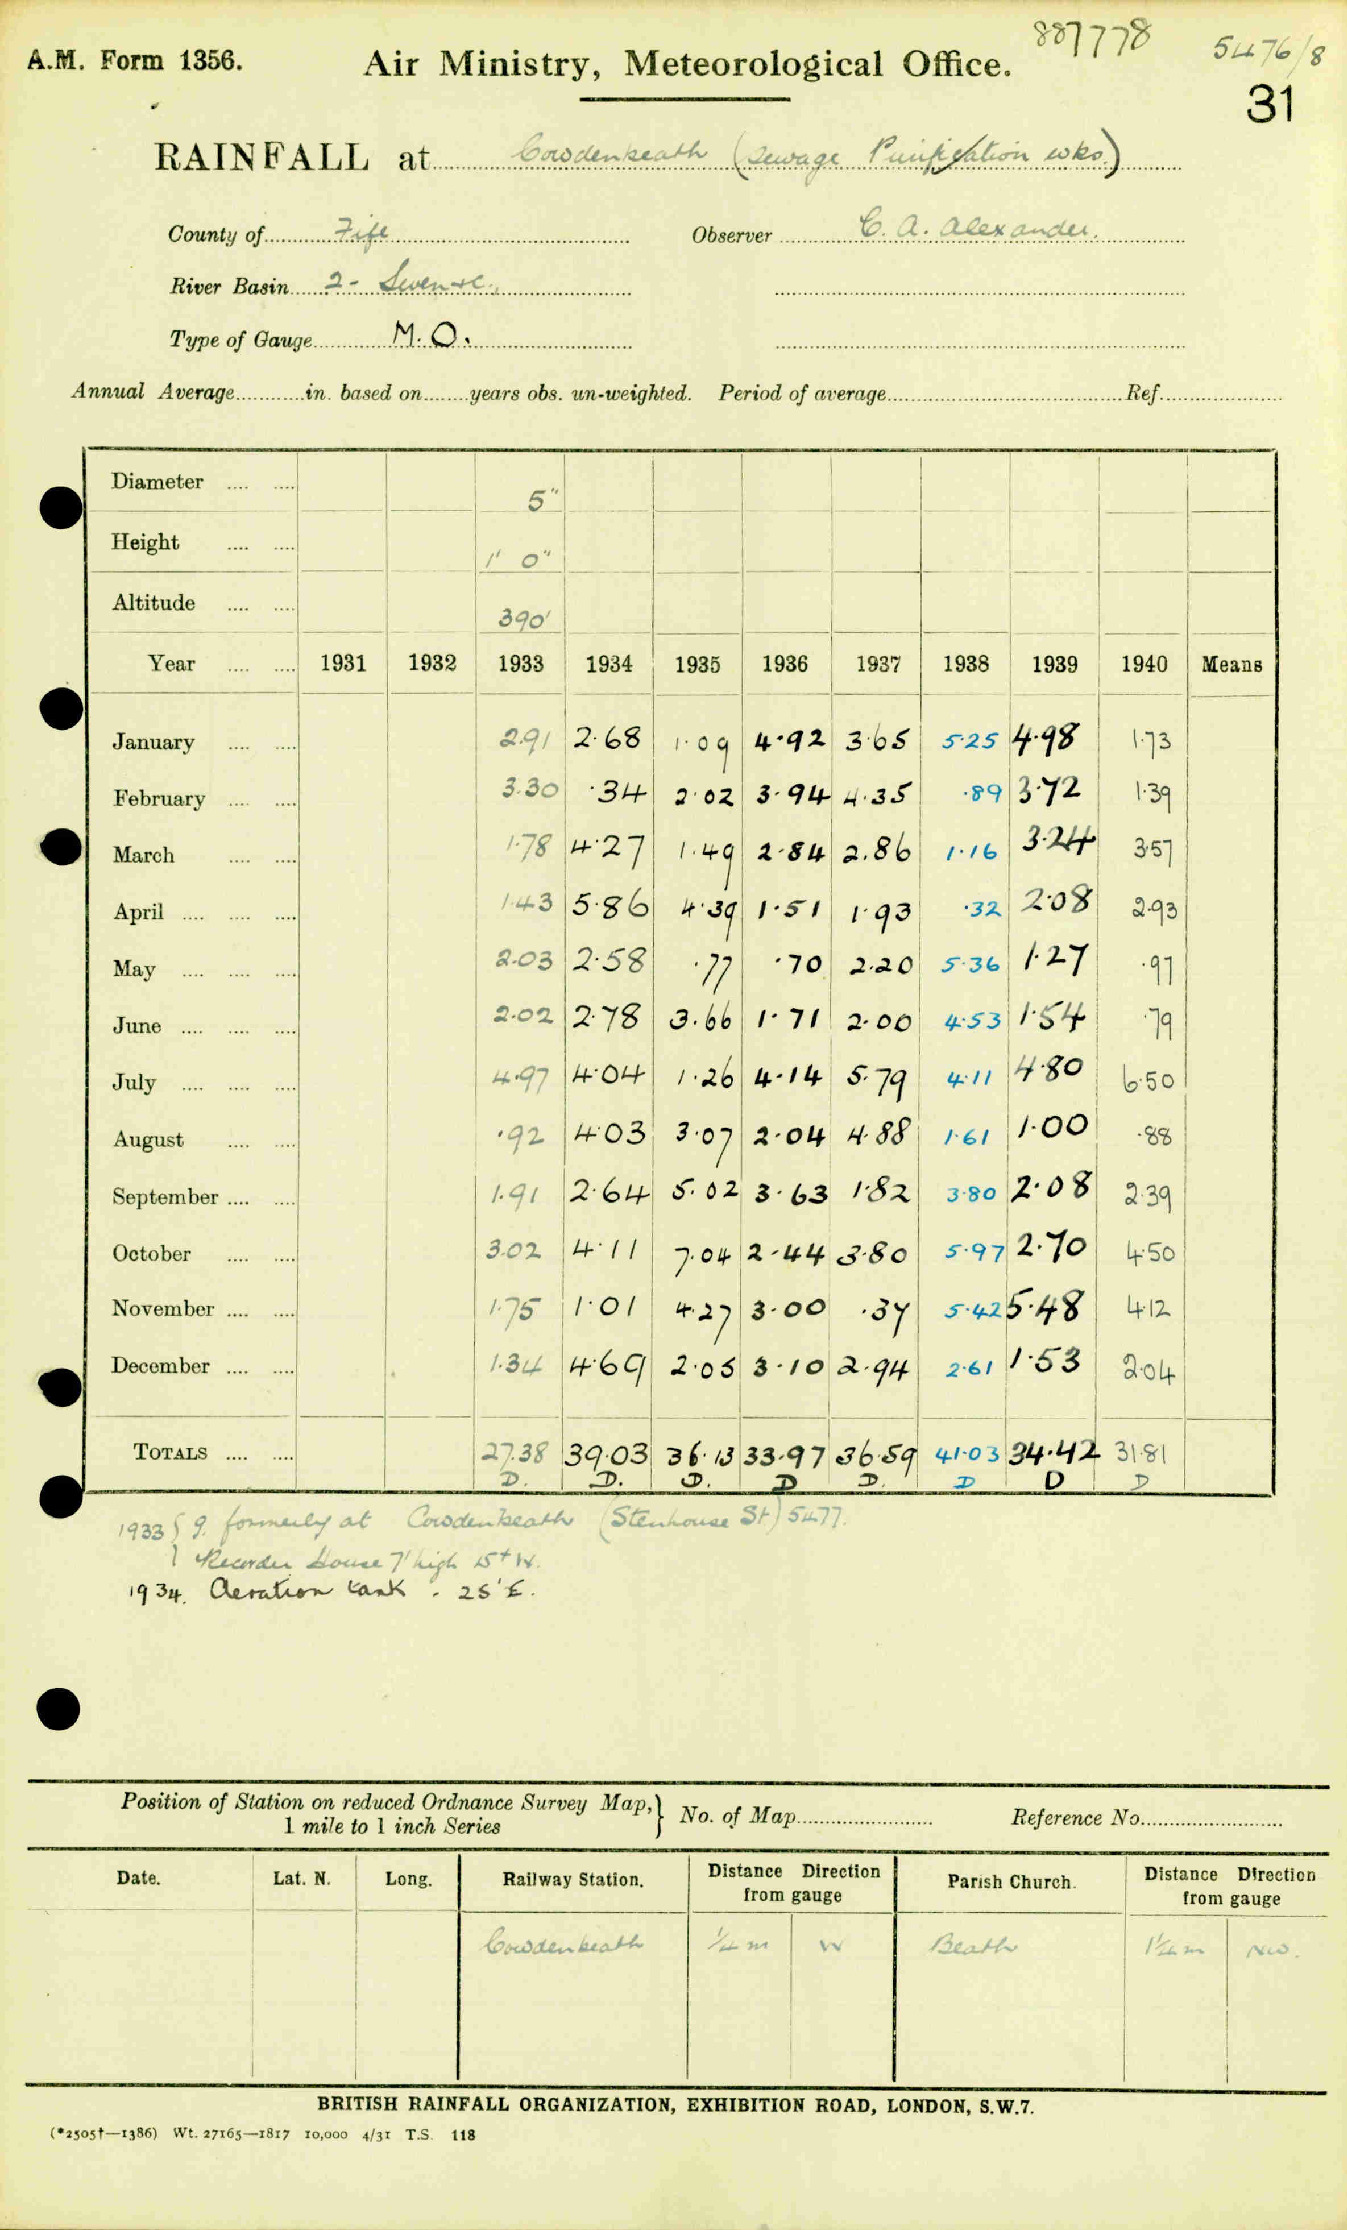 887778
5476/8
A.M. Form 1356. Air Ministry, Meteorological Office.
31
RAINFALL at Cowdenbeath (Sewage Purification wks.)
County of Fife Observer C. A. Alexander.
River Basin 2 -
Type of Gauge M.O.
Annual Average in. based on years obs. un-weighted. Period of average Ref.
Diameter 5"
Height 1' 0"
Altitude 390'
Year 1931 1932 1933 1934 1935 1936 1937 1938 1939 1940 Means
January 2.91 2.68 1.09 4.92 3.65 5.25 4.98 1.73
February 3.30 .34 2.02 3.94 4.35 .89 3.72 1.39
March 1.78 4.27 1.49 2.84 2.86 1.16 3.24 3.57
April 1.43 5.86 4.39 1.51 1.93 .32 2.08 2.93
May 2.03 2.58 .77 .70 2.20 5.36 1.27 .97
June 2.02 2.78 3.66 1.71 2.00 4.53 1.54 .79
July 4.97 4.04 1.26 4.14 5.79 4.11 4.80 6.50
August .92 4.03 3.07 2.04 4.88 1.61 1.00 .88
September 1.91 2.64 5.02 3.63 1.82 3.80 2.08 2.39
October 3.02 4.11 7.04 2.44 3.80 5.97 2.70 4.50
November 1.75 1.01 4.27 3.00 .37 5.42 5.48 4.12
December 1.34 4.69 2.05 3.10 2.94 2.61 1.53 2.04
TOTALS 27.38 39.03 36.13 33.97 36.59 41.03 34.42 31.81
D. D. D. D D. D D D
1933 { g. formerly at Cowdenbeath (Stenhouse St) 5477.
Recorder House 7' high 15ft W.
1934. Aeration tank . 25' E.
Position of Station on reduced Ordnance Survey Map, } No. of Map Reference No.
1 mile to 1 inch Series
Date. Lat. N. Long. Railway Station. Distance Direction from gauge Parish Church. Distance Direction from gauge
Cowdenbeath 1/4 m W Beath 1 1/4 m NW.
BRITISH RAINFALL ORGANIZATION, EXHIBITION ROAD, LONDON, S.W.7.
(*2505†—1386) Wt. 27165—1817 10,000 4/31 T.S. 118